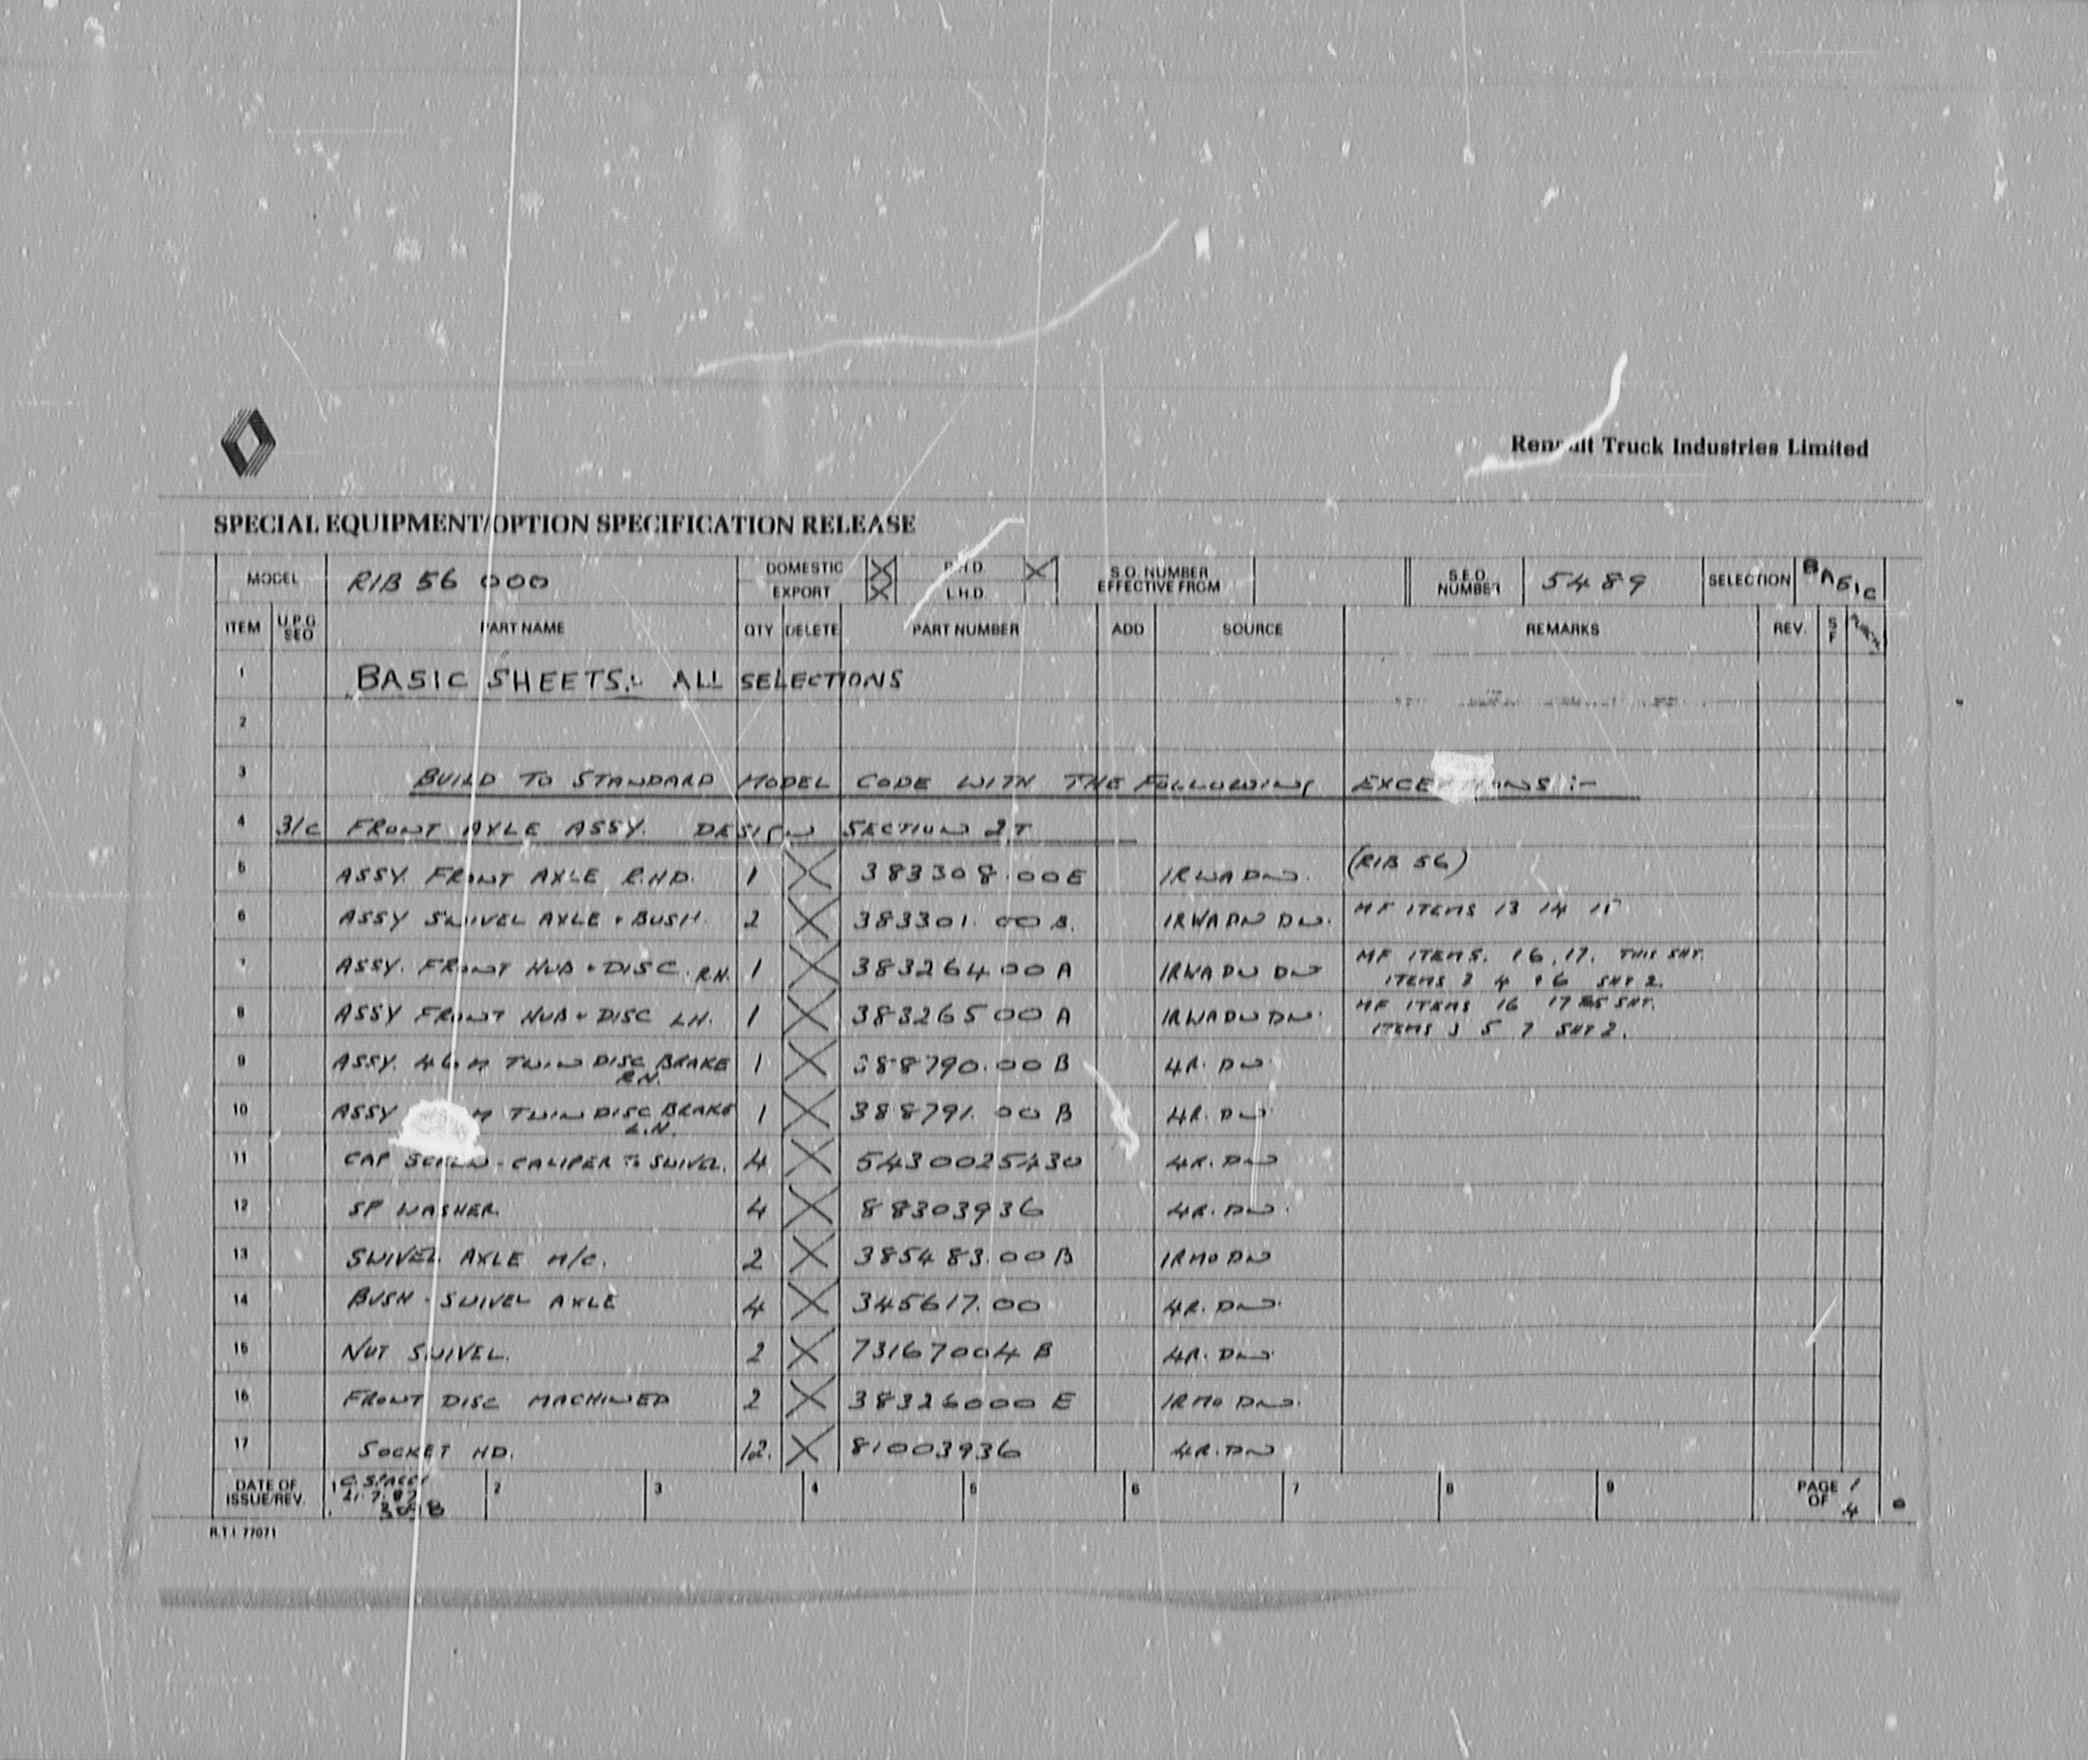 Renault Truck Industries Limited
SPECIAL EQUIPMENT/OPTION SPECIFICATION RELEASE
MODEL RIB 56 000 DOMESTIC X R.H.D. X S.O. NUMBER EFFECTIVE FROM S.E.O. NUMBER 5489 SELECTION BASIC
EXPORT X L.H.D.
ITEM U.P.G. SEQ PART NAME QTY DELETE PART NUMBER ADD SOURCE REMARKS REV. S F
1 BASIC SHEETS:- ALL SELECTIONS
2
3 BUILD TO STANDARD MODEL CODE WITH THE FOLLOWING EXCEPTIONS :-
4 31C FRONT AXLE ASSY. DESIGN SECTION 2T
5 ASSY. FRONT AXLE R.HD. 1 X 383308.00E 1RWADW. (RIB 56)
6 ASSY SWIVEL AXLE + BUSH. 2 X 383301.00 B. 1RWADW DW. MF ITEMS 13 14 15
7 ASSY. FRONT HUB + DISC. R.H. 1 X 383264.00 A 1RWADW DW MF ITEMS. 16, 17. THIS SHT.
ITEMS 3 4 + 6 SHT 2.
8 ASSY FRONT HUB + DISC L.H. 1 X 38326500 A 1RWADW DW. MF ITEMS 16 17 SHT.
ITEMS 3 5 7 SHT 2.
9 ASSY. 46 M TWIN DISC BRAKE R.H. 1 X 388790.00 B 4R. DW
10 ASSY M TWIN DISC BRAKE L.H. 1 X 388791.00 B 4R. DW
11 CAP SCREW - CALIPER TO SWIVEL. 4 X 5430025430 4R. DW
12 SP WASHER. 4 X 88303936 4R. DW.
13 SWIVEL AXLE M/C. 2 X 385483.00 B 1RMO DW
14 BUSH - SWIVEL AXLE 4 X 345617.00 4R. DW.
15 NUT SWIVEL. 2 X 73167004 B 4R. DW.
16 FRONT DISC MACHINED 2 X 38326000 E 1RMO DW.
17 SOCKET HD. 12. X 81003936 4R. DW
DATE OF ISSUE/REV. 1 C. STACEY 2 3 4 5 6 7 8 9 PAGE 1 OF 4
21.7.87
R.T.I. 77071